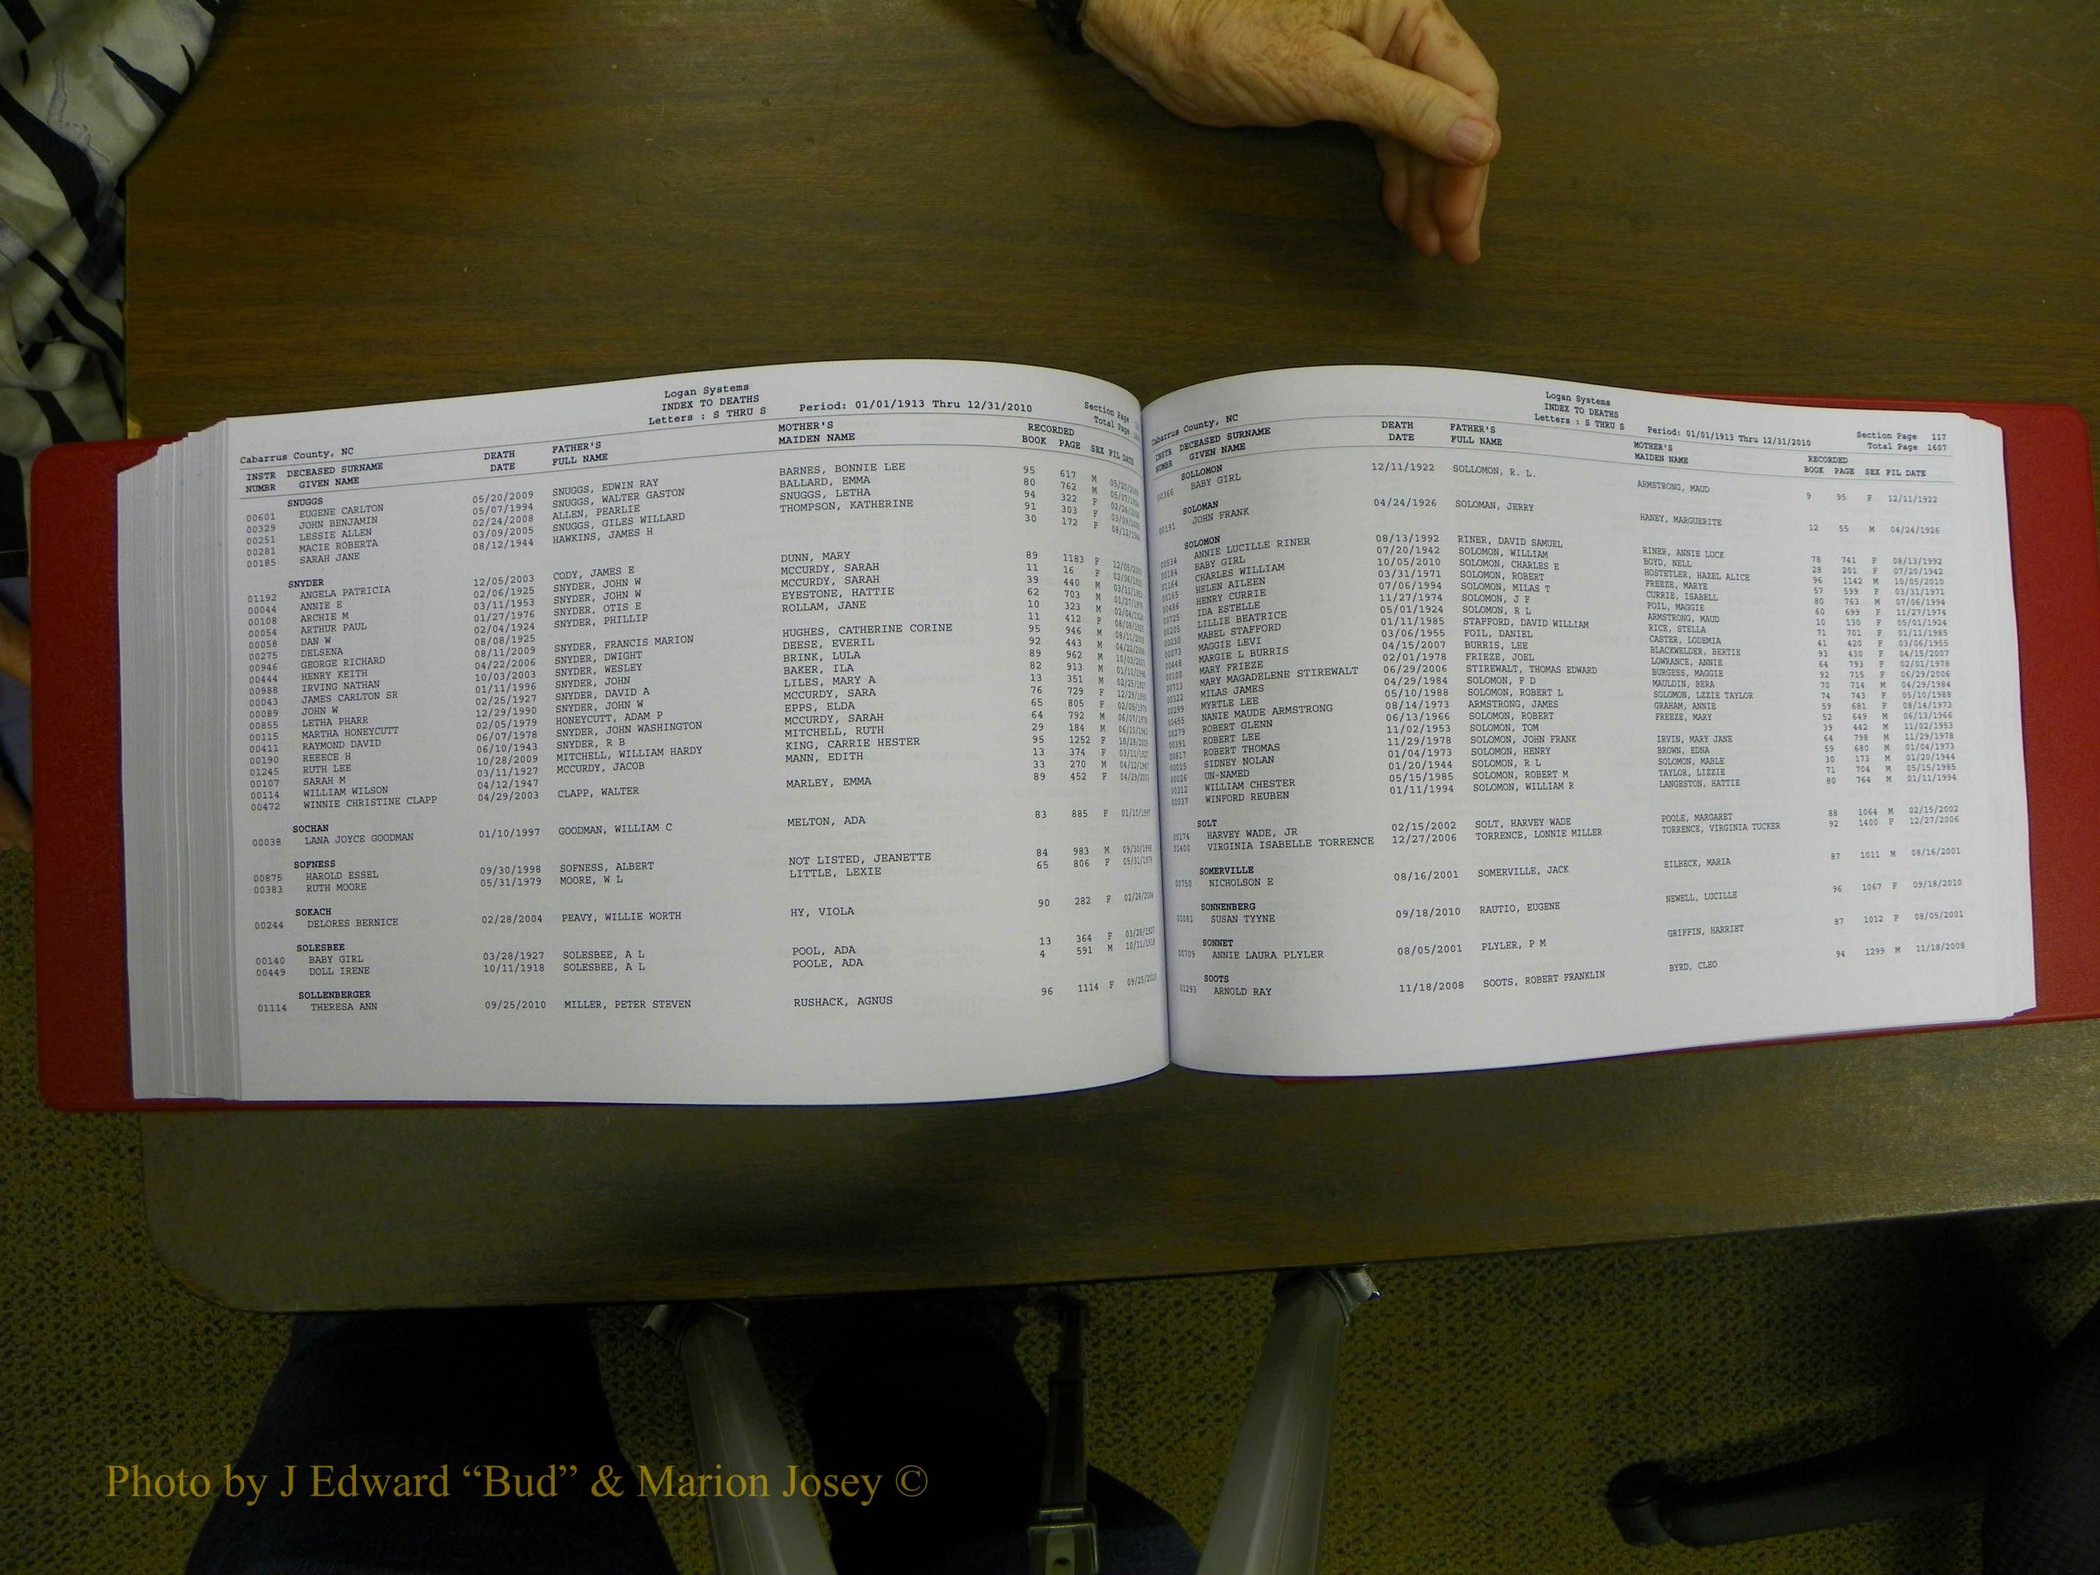 Logan Systems
INDEX TO DEATHS
Letters : S THRU S Period: 01/01/1913 Thru 12/31/2010 Section Page
Cabarrus County, NC Total Page
INSTR DECEASED SURNAME DEATH FATHER'S MOTHER'S RECORDED
NUMBR GIVEN NAME DATE FULL NAME MAIDEN NAME BOOK PAGE SEX FIL DATE
SNUGGS
00601 EUGENE CARLTON 05/20/2009 SNUGGS, EDWIN RAY BARNES, BONNIE LEE 95 617 M 05/20/2009
00329 JOHN BENJAMIN 05/07/1994 SNUGGS, WALTER GASTON BALLARD, EMMA 80 762 M 05/07/1994
00251 LESSIE ALLEN 02/24/2008 ALLEN, PEARLIE SNUGGS, LETHA 94 322 F 02/24/2008
00281 MACIE ROBERTA 03/09/2005 SNUGGS, GILES WILLARD THOMPSON, KATHERINE 91 303 F 03/09/2005
00185 SARAH JANE 08/12/1944 HAWKINS, JAMES H 30 172 F 08/12/1944
SNYDER
01192 ANGELA PATRICIA 12/05/2003 CODY, JAMES E DUNN, MARY 89 1183 F 12/05/2003
00044 ANNIE E 02/06/1925 SNYDER, JOHN W MCCURDY, SARAH 11 16 F 02/06/1925
00108 ARCHIE M 03/11/1953 SNYDER, JOHN W MCCURDY, SARAH 39 440 M 03/11/1953
00054 ARTHUR PAUL 01/27/1976 SNYDER, OTIS E EYESTONE, HATTIE 62 703 M 01/27/1976
00058 DAN W 02/04/1924 SNYDER, PHILLIP ROLLAM, JANE 10 323 M 02/04/1924
00275 DELSENA 08/08/1925 11 412 F 08/08/1925
00946 GEORGE RICHARD 08/11/2009 SNYDER, FRANCIS MARION HUGHES, CATHERINE CORINE 95 946 M 08/11/2009
00444 HENRY KEITH 04/22/2006 SNYDER, DWIGHT DEESE, EVERIL 92 443 M 04/22/2006
00988 IRVING NATHAN 10/03/2003 SNYDER, WESLEY BRINK, LULA 89 962 M 10/03/2003
00043 JAMES CARLTON SR 01/11/1996 SNYDER, JOHN BAKER, ILA 82 913 M 01/11/1996
00089 JOHN W 02/25/1927 SNYDER, DAVID A LILES, MARY A 13 351 M 02/25/1927
00855 LETHA PHARR 12/29/1990 SNYDER, JOHN W MCCURDY, SARA 76 729 F 12/29/1990
00115 MARTHA HONEYCUTT 02/05/1979 HONEYCUTT, ADAM P EPPS, ELDA 65 805 F 02/05/1979
00411 RAYMOND DAVID 06/07/1978 SNYDER, JOHN WASHINGTON MCCURDY, SARAH 64 792 M 06/07/1978
00190 REEECE H 06/10/1943 SNYDER, R B MITCHELL, RUTH 29 184 M 06/10/1943
01245 RUTH LEE 10/28/2009 MITCHELL, WILLIAM HARDY KING, CARRIE HESTER 95 1252 F 10/28/2009
00107 SARAH M 03/11/1927 MCCURDY, JACOB MANN, EDITH 13 374 F 03/11/1927
00114 WILLIAM WILSON 04/12/1947 33 270 M 04/12/1947
00472 WINNIE CHRISTINE CLAPP 04/29/2003 CLAPP, WALTER MARLEY, EMMA 89 452 F 04/29/2003
SOCHAN
00038 LANA JOYCE GOODMAN 01/10/1997 GOODMAN, WILLIAM C MELTON, ADA 83 885 F 01/10/1997
SOFNESS
00875 HAROLD ESSEL 09/30/1998 SOFNESS, ALBERT NOT LISTED, JEANETTE 84 983 M 09/30/1998
00383 RUTH MOORE 05/31/1979 MOORE, W L LITTLE, LEXIE 65 806 F 05/31/1979
SOKACH
00244 DELORES BERNICE 02/28/2004 PEAVY, WILLIE WORTH HY, VIOLA 90 282 F 02/28/2004
SOLESBEE
00140 BABY GIRL 03/28/1927 SOLESBEE, A L POOL, ADA 13 364 F 03/28/1927
00449 DOLL IRENE 10/11/1918 SOLESBEE, A L POOLE, ADA 4 591 M 10/11/1918
SOLLENBERGER
01114 THERESA ANN 09/25/2010 MILLER, PETER STEVEN RUSHACK, AGNUS 96 1114 F 09/25/2010
Logan Systems
INDEX TO DEATHS
Letters : S THRU S Period: 01/01/1913 Thru 12/31/2010 Section Page 117
Cabarrus County, NC Total Page 1607
INSTR DECEASED SURNAME DEATH FATHER'S MOTHER'S RECORDED
NUMBR GIVEN NAME DATE FULL NAME MAIDEN NAME BOOK PAGE SEX FIL DATE
SOLLOMON
00366 BABY GIRL 12/11/1922 SOLLOMON, R. L. ARMSTRONG, MAUD 9 95 F 12/11/1922
SOLOMAN
00191 JOHN FRANK 04/24/1926 SOLOMAN, JERRY HANEY, MARGUERITE 12 55 M 04/24/1926
SOLOMON
00534 ANNIE LUCILLE RINER 08/13/1992 RINER, DAVID SAMUEL RINER, ANNIE LUCK 78 741 F 08/13/1992
00184 BABY GIRL 07/20/1942 SOLOMON, WILLIAM BOYD, NELL 28 201 F 07/20/1942
01164 CHARLES WILLIAM 10/05/2010 SOLOMON, CHARLES E HOSTETLER, HAZEL ALICE 96 1142 M 10/05/2010
00165 HELEN AILEEN 03/31/1971 SOLOMON, ROBERT FREEZE, MARYE 57 599 F 03/31/1971
00486 HENRY CURRIE 07/06/1994 SOLOMON, MILAS T CURRIE, ISABELL 80 763 M 07/06/1994
00725 IDA ESTELLE 11/27/1974 SOLOMON, J F FOIL, MAGGIE 60 699 F 11/27/1974
00205 LILLIE BEATRICE 05/01/1924 SOLOMON, R L ARMSTRONG, MAUD 10 130 F 05/01/1924
00030 MABEL STAFFORD 01/11/1985 STAFFORD, DAVID WILLIAM RICE, STELLA 71 701 F 01/11/1985
00073 MAGGIE LEVI 03/06/1955 FOIL, DANIEL CASTER, LODEMIA 41 420 F 03/06/1955
00448 MARGIE L BURRIS 04/15/2007 BURRIS, LEE BLACKWELDER, BERTIE 93 430 F 04/15/2007
00100 MARY FRIEZE 02/01/1978 FRIEZE, JOEL LOWRANCE, ANNIE 64 793 F 02/01/1978
00713 MARY MAGADELENE STIREWALT 06/29/2006 STIREWALT, THOMAS EDWARD BURGESS, MAGGIE 92 715 F 06/29/2006
00322 MILAS JAMES 04/29/1984 SOLOMON, F D MAULDIN, BERA 70 714 M 04/29/1984
00299 MYRTLE LEE 05/10/1988 SOLOMON, ROBERT L SOLOMON, LZZIE TAYLOR 74 743 F 05/10/1988
00455 NANIE MAUDE ARMSTRONG 08/14/1973 ARMSTRONG, JAMES GRAHAM, ANNIE 59 681 F 08/14/1973
00279 ROBERT GLENN 06/13/1966 SOLOMON, ROBERT FREEZE, MARY 52 649 M 06/13/1966
00391 ROBERT LEE 11/02/1953 SOLOMON, TOM 39 442 M 11/02/1953
00817 ROBERT THOMAS 11/29/1978 SOLOMON, JOHN FRANK IRVIN, MARY JANE 64 798 M 11/29/1978
00015 SIDNEY NOLAN 01/04/1973 SOLOMON, HENRY BROWN, EDNA 59 680 M 01/04/1973
00026 UN-NAMED 01/20/1944 SOLOMON, R L SOLOMON, MABLE 30 173 M 01/20/1944
00312 WILLIAM CHESTER 05/15/1985 SOLOMON, ROBERT M TAYLOR, LIZZIE 71 704 M 05/15/1985
00037 WINFORD REUBEN 01/11/1994 SOLOMON, WILLIAM R LANGESTON, HATTIE 80 764 M 01/11/1994
SOLT
00174 HARVEY WADE, JR 02/15/2002 SOLT, HARVEY WADE POOLE, MARGARET 88 1064 M 02/15/2002
01400 VIRGINIA ISABELLE TORRENCE 12/27/2006 TORRENCE, LONNIE MILLER TORRENCE, VIRGINIA TUCKER 92 1400 F 12/27/2006
SOMERVILLE
00750 NICHOLSON E 08/16/2001 SOMERVILLE, JACK EILBECK, MARIA 87 1011 M 08/16/2001
SONNENBERG
01081 SUSAN TYYNE 09/18/2010 RAUTIO, EUGENE NEWELL, LUCILLE 96 1067 F 09/18/2010
SONNET
00709 ANNIE LAURA PLYLER 08/05/2001 PLYLER, P M GRIFFIN, HARRIET 87 1012 F 08/05/2001
SOOTS
01293 ARNOLD RAY 11/18/2008 SOOTS, ROBERT FRANKLIN BYRD, CLEO 94 1299 M 11/18/2008
Photo by J Edward “Bud” & Marion Josey ©